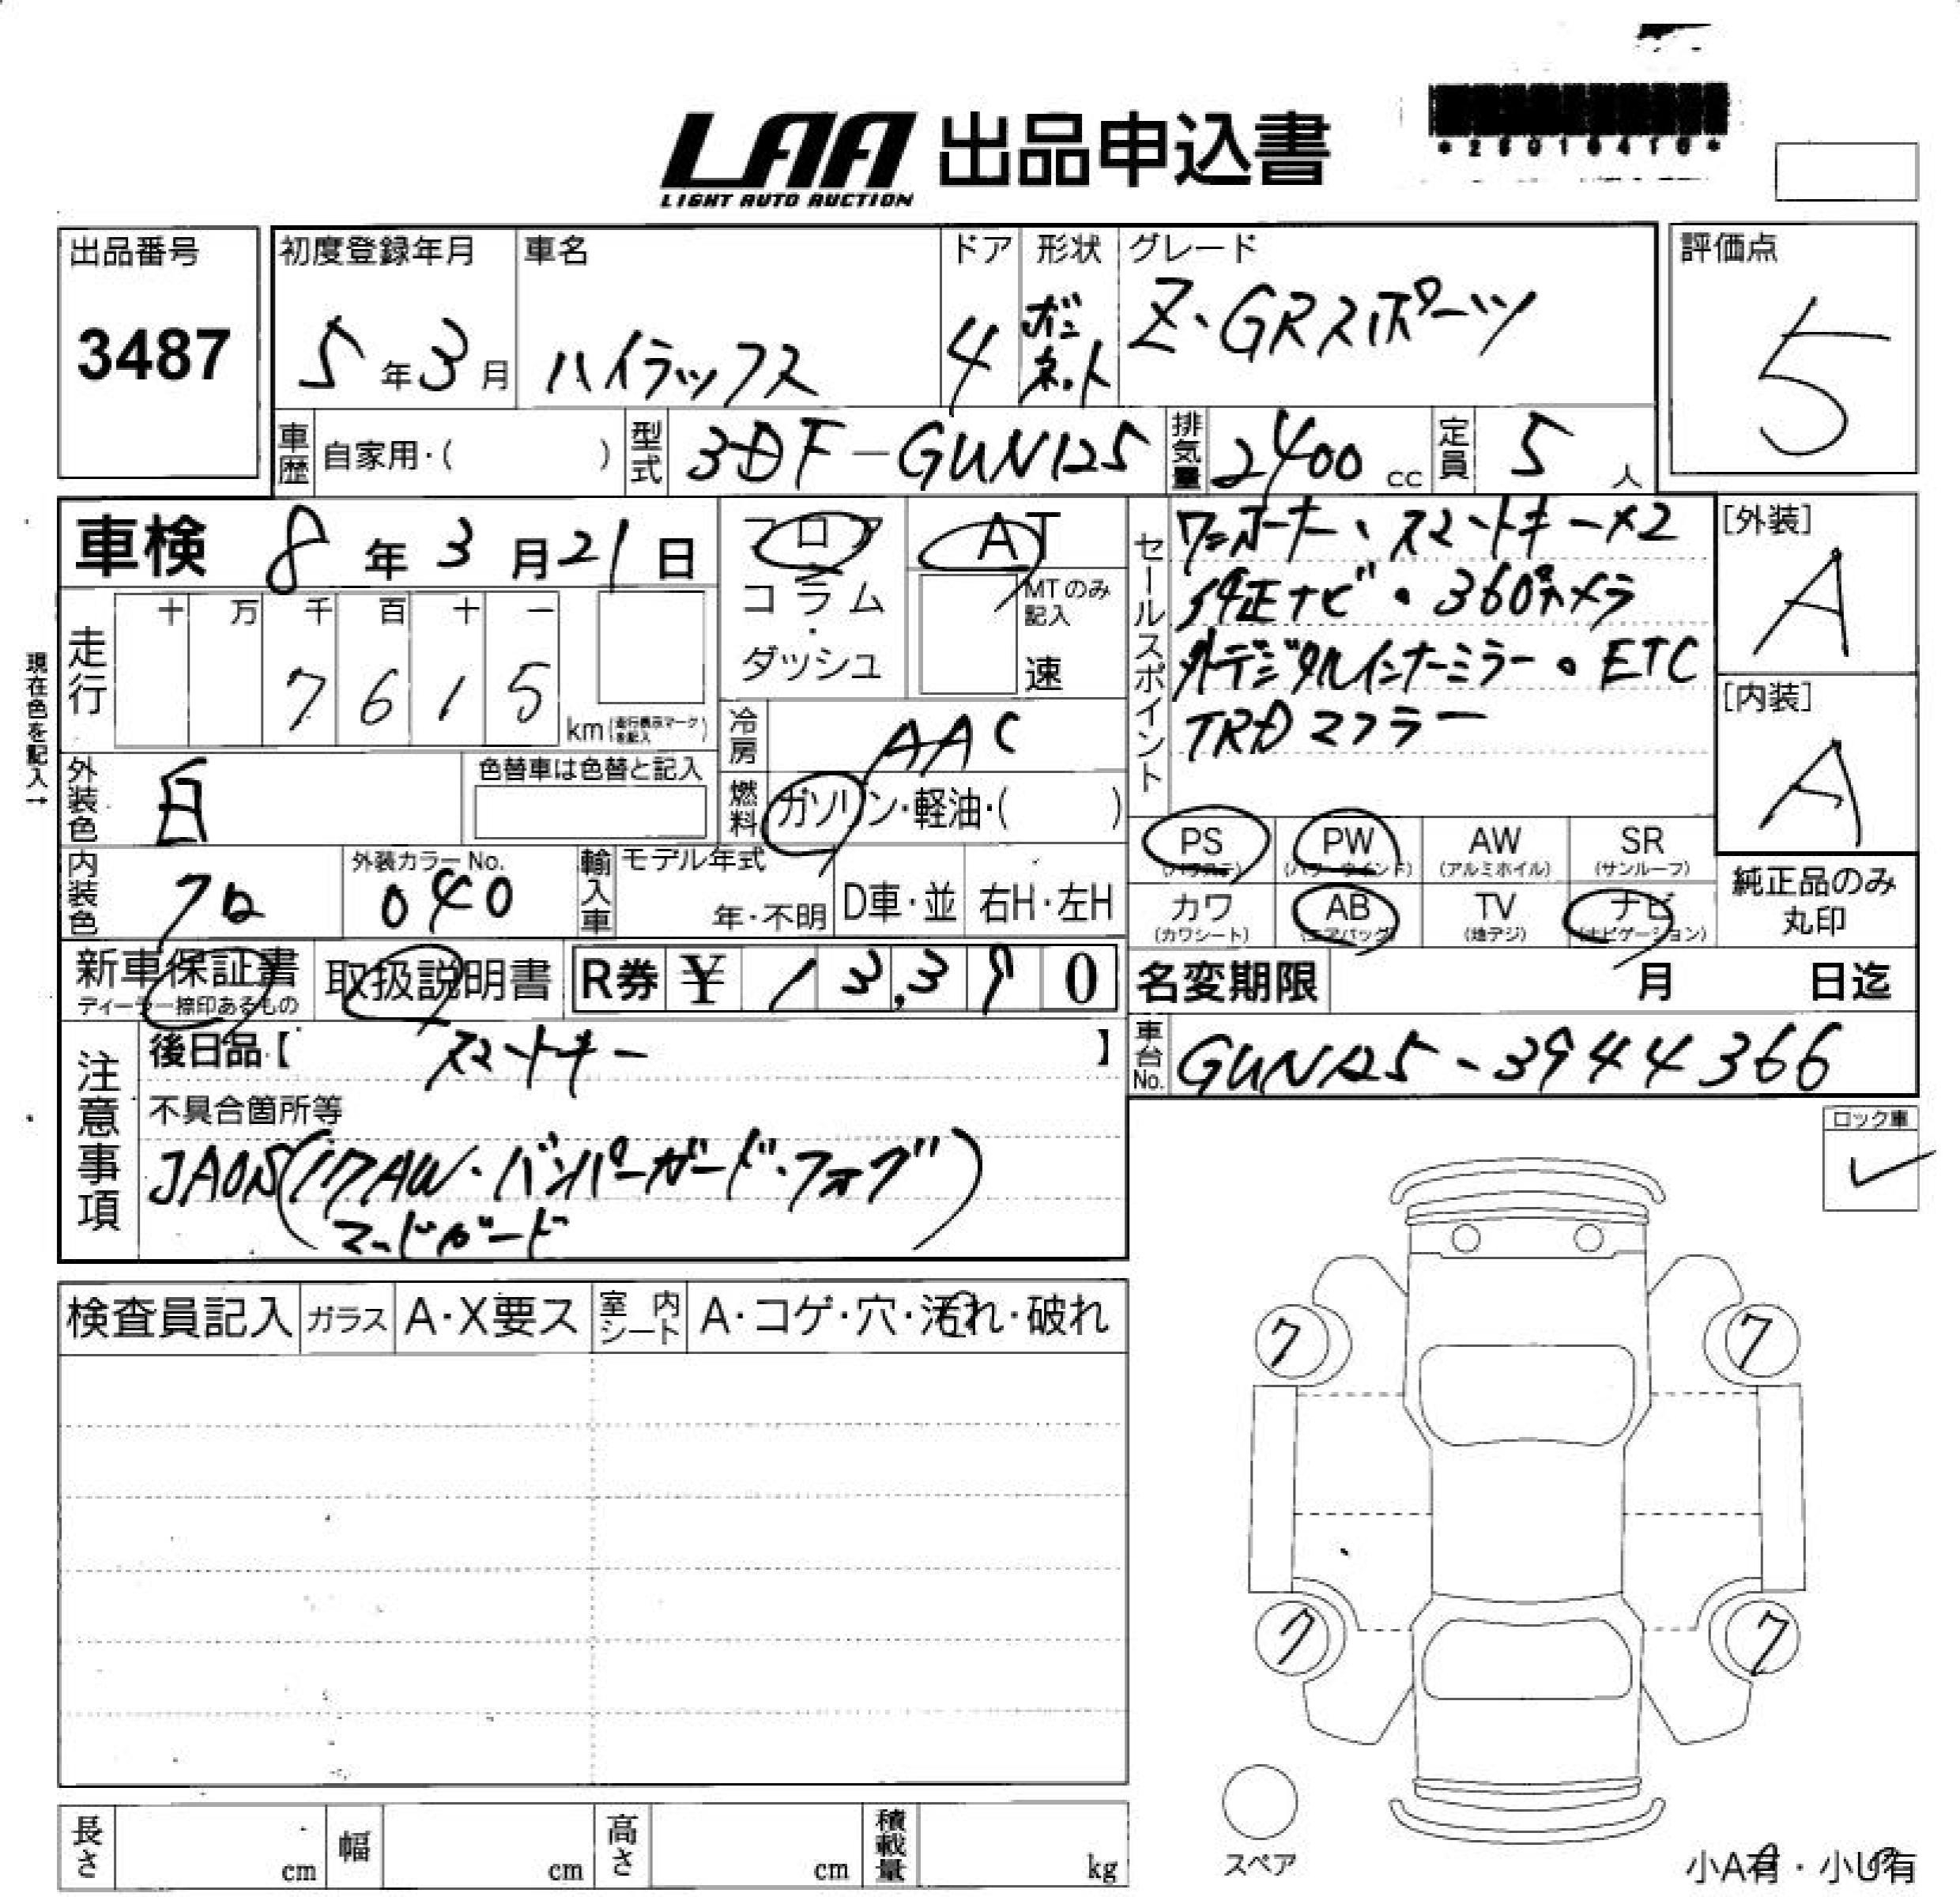 LAA 出品申込書
LIGHT AUTO AUCTION
出品番号
3487
初度登録年月
5年3月
車名
ハイラックス
ドア
4
形状
ボンネット
グレード
Z・GRスポーツ
評価点
5
車歴 自家用・( )
型式 3DF-GUN125
排気量 2400 cc
定員 5 人
車検 8年3月21日
フロア
コラム・
ダッシュ
AT
MTのみ記入
速
走行
十 万 千 百 十 一
7 6 1 5
km(走行表示マークを記入)
現在色を記入→
冷房 AAC
燃料 ガソリン・軽油・( )
セールスポイント
ワンオーナー、スマートキー×2
純正ナビ・360°カメラ
デジタルインナーミラー・ETC
TRDマフラー
[外装]
A
[内装]
A
外装色 白
色替車は色替と記入
内装色 クロ
外装カラーNo.
040
輸入車
モデル年式
年・不明
D車・並
右H・左H
PS (パワステ)
PW (パワーウインド)
AW (アルミホイル)
SR (サンルーフ)
カワ (カワシート)
AB (エアバッグ)
TV (地デジ)
ナビ (ナビゲーション)
純正品のみ丸印
新車保証書
ディーラー捺印あるもの
取扱説明書
R券 ¥ 13,390
名変期限 月 日迄
車台No. GUN125-3944366
注意事項
後日品【 スマートキー 】
不具合箇所等
JAOS(17AW・バンパーガード・フォグ
マッドガード)
ロック車
✓
検査員記入
ガラス A・X要ス
室内シート A・コゲ・穴・汚れ・破れ
7 7
7 7
スペア
長さ cm
幅 cm
高さ cm
積載量 kg
小A有・小U有